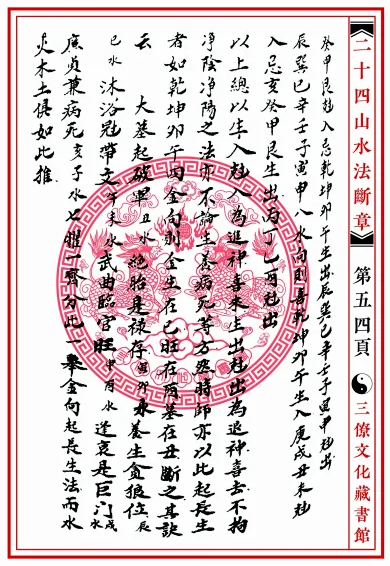 二十四山水法斷章
第五四頁
三僚文化藏書館
癸甲艮尅入忌乾坤卯午生出辰巽巳辛壬子寅申尅出
辰巽巳辛壬子寅申八水向則喜乾坤卯午生入庚戌丑未尅
入忌亥癸甲艮生出丙丁乙酉尅出
以上總以生入尅入為進神喜來生出尅出為退神喜去不拘
淨陰淨陽之法亦不論生養病死等方然時師亦以此起長生
者如乾坤卯午四金向則金生在巳旺在酉墓在丑斷之其訣
云 大墓起破軍丑水絕胎是祿存寅卯水養生貪狼位辰
巳水沐浴冠帶文午未水武曲臨官旺申酉水逢衰是巨門戌水
廉貞兼病死亥子水七曜一齊分此一舉金向起長生法而水
火木土俱如此推